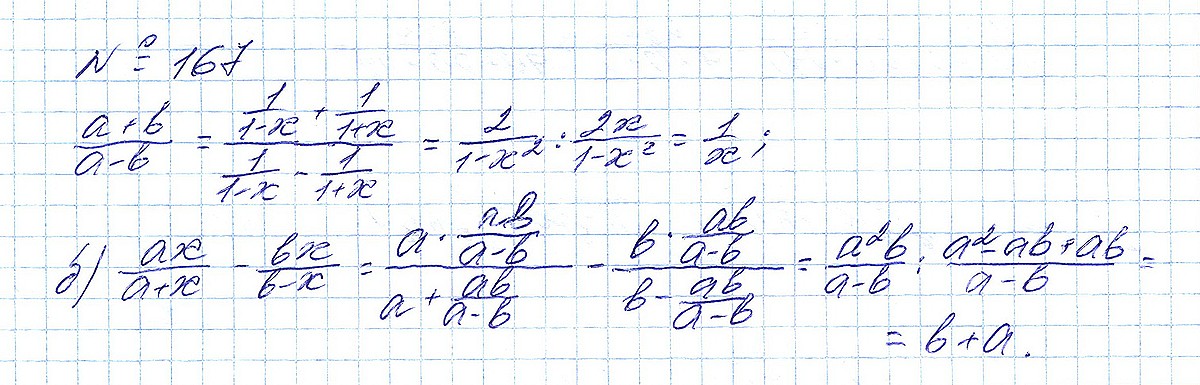 № 167
(a+b)/(a-b) = (1/(1-x) + 1/(1+x))/(1/(1-x) - 1/(1+x)) = 2/(1-x²) : 2x/(1-x²) = 1/x;
б) ax/(a+x) - bx/(b-x) = (a · ab/(a-b))/(a + ab/(a-b)) - (b · ab/(a-b))/(b - ab/(a-b)) = a²b/(a-b) : (a²-ab+ab)/(a-b) =
= b+a.